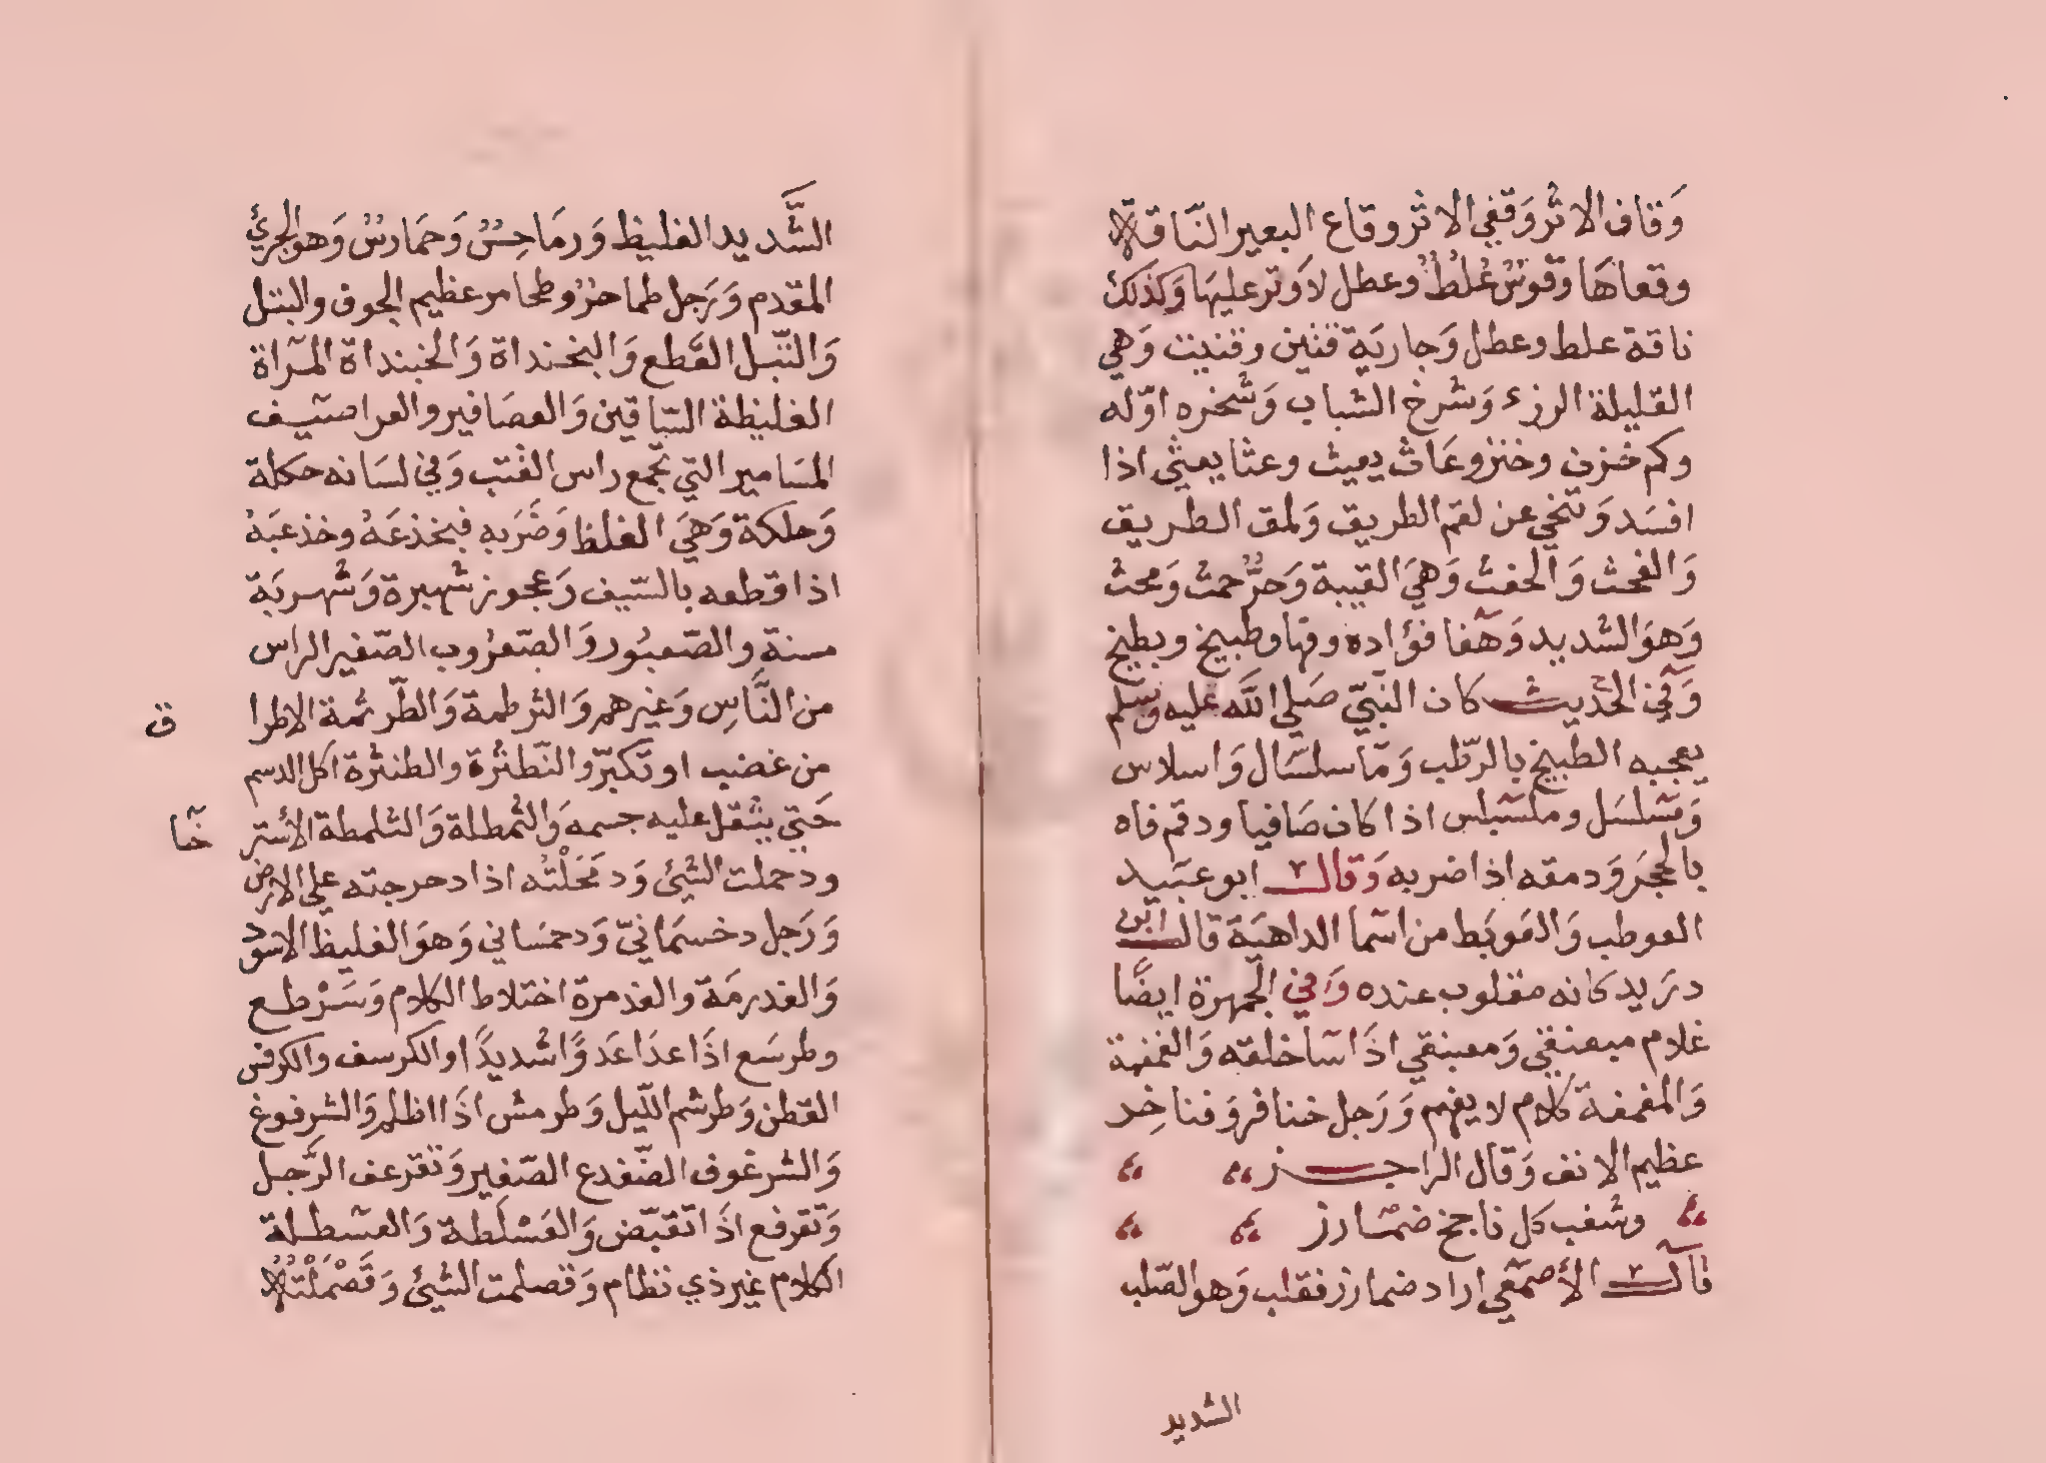 وَقاف الاثر وَقفي الاثر وقاع البعير النّاقة
وقعاهَا وَقوسٌ عُلُطٌ وعطل لا وَتر عليهَا وَكذلك
ناقة علط وعطل وَجاريَة قنين وقنيت وَهي
القليلة الرزء وَشرخ الشباب وَشخره اوّله
وكم خزن وخنز وعَاث يعيث وعثا يعثي اذا
افسَد وَتنحي عن لقم الطريق وَلمق الطريق
وَالفحث وَالحفث وَهيَ القبة وَحرٌّ حمتٌ وَمحتٌ
وَهوَ الشديد وَهفا فؤاده وفها وطبيخ وبطيخ
وَفي الحَديث كان النّبيّ صَلي الله عليه وَسَلم
يعجبه الطبيخ بالرّطب وَمَا سلسَال وَاسلاس
وَمسَلسَل وملسَلس اذا كان صَافيا ودقم فاه
بالحجَر وَدمقه اذا ضربه وَقال ابو عبَيد
العوطب وَالعَوبَط من اسَما الداهيَة قال ابن
درَيد كانه مقلوب عنده وَفي الجَمهرة ايضًا
غلام مبعنقي وَمعبنقي اذَا سَا خلقه وَالغمغمة
وَالمغمغة كلام لا يفهم وَرَجل خنافر وَفناخِر
عظيم الانف وَقال الراجز
وشعب كل ناجخ ضمَارز
قَال الأصمَعي اراد ضمارز فقلب وَهو الصّلب
الشديد
الشَّديد الغليظ وَرمَاحِسٌ وَحمَارسٌ وَهو الجريُ
المقدم وَرَجل طماحرٌ وطحامر عظيم الجوف والبتل
وَالتّبل القَطع وَالبخنداة وَالخبنداة المَراة
الغليظة السّاقين وَالعصَافير والعراصيَف
المسَامير التي تجمع راس القتب وَفي لسَانه حكلة
وَحلكة وَهيَ الغلظ وَضَربَه فبخذعَهُ وخذعبَهُ
اذا قطعه بالسّيف وَعجوز شهبرة وَشهربَة
مسنة والصّعبُور وَالصّعرُوب الصّغير الراس
من النَّاسِ وَغيرهم وَالثرطمة وَالطّرثمة الاطرا
ق
من غضب او تكبّر والنّطثرَة والطنثرة اكل الدسم
حَتي يثقل عليه جسمه وَالثمطلة وَالثلمطة الأستر
خَا
ودحملت الشئَ وَدمحَلْتُه اذا دحرجته علي الارض
وَرَجل دخسمَانيّ وَدحمسَاني وَهوَ الغليظ الاسود
وَالغدرمَة والغذمرة اختلاط الكلام وَسَرْطع
وطرسَع اذَا عدَا عَدوًا شديدًا والكرسف والكرفس
القطن وَطرشم اللّيل وَطرمش اذَا اظلم وَالشرفوغ
وَالشرغوف الضّفدع الصّغير وَتقرعف الرَّجل
وَتقرفع اذَا تقبّض وَالعَسْلَطة وَالعسَطلة
الكلام غير ذي نظام وَقصلمت الشئَ وَقَصْمَلْتُهُ